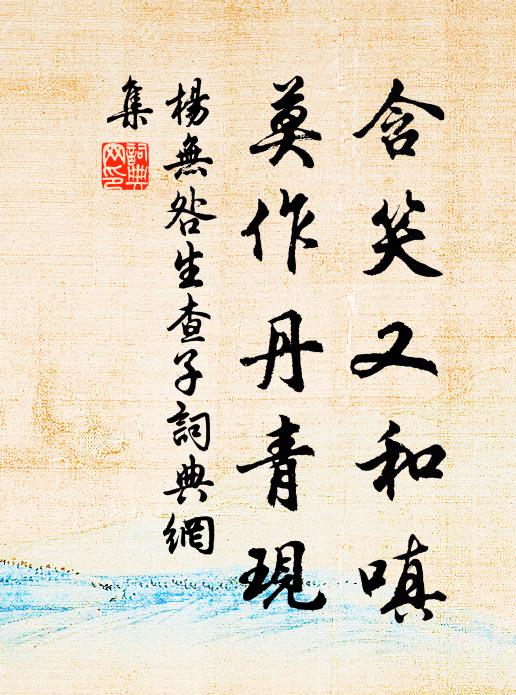 含笑又和嗔
莫作丹青現
楊無咎生查子詞典網
集
詞典網印